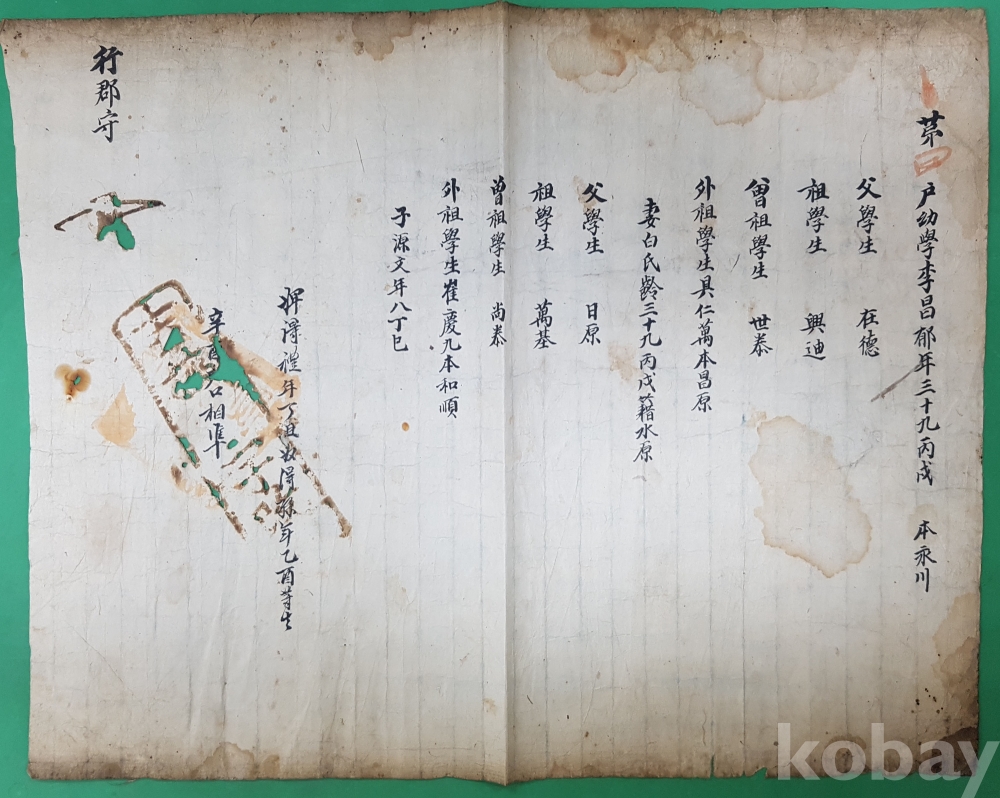 第 戶幼學李昌郁年三十九丙戌 本永川
父學生 在德
祖學生 興迪
曾祖學生 世泰
外祖學生具仁萬本昌原
妻白氏齡三十九丙戌籍水原
父學生 日原
祖學生 萬基
曾祖學生 尚泰
外祖學生崔慶九本和順
子源文年八丁巳
婢得禮年丁丑 得孫年乙酉等生
辛酉戶口相準
行郡守
kobay